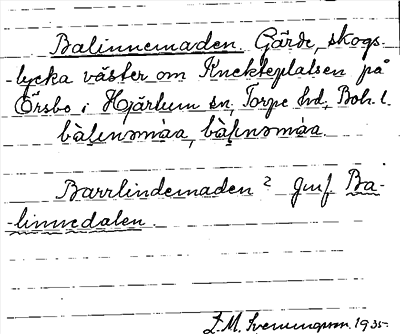 Balinnemaden. Gärde, skogs-
-lycka väster om Knekteplatsen på
Örsbo i Hjärtum sn, Torpe hd, Boh. l.
bàlınəmàa, bàḷınəmàa.
Barrlindemaden? Jmf Ba-
-linnedalen.
E. M. Svenungsson. 1935